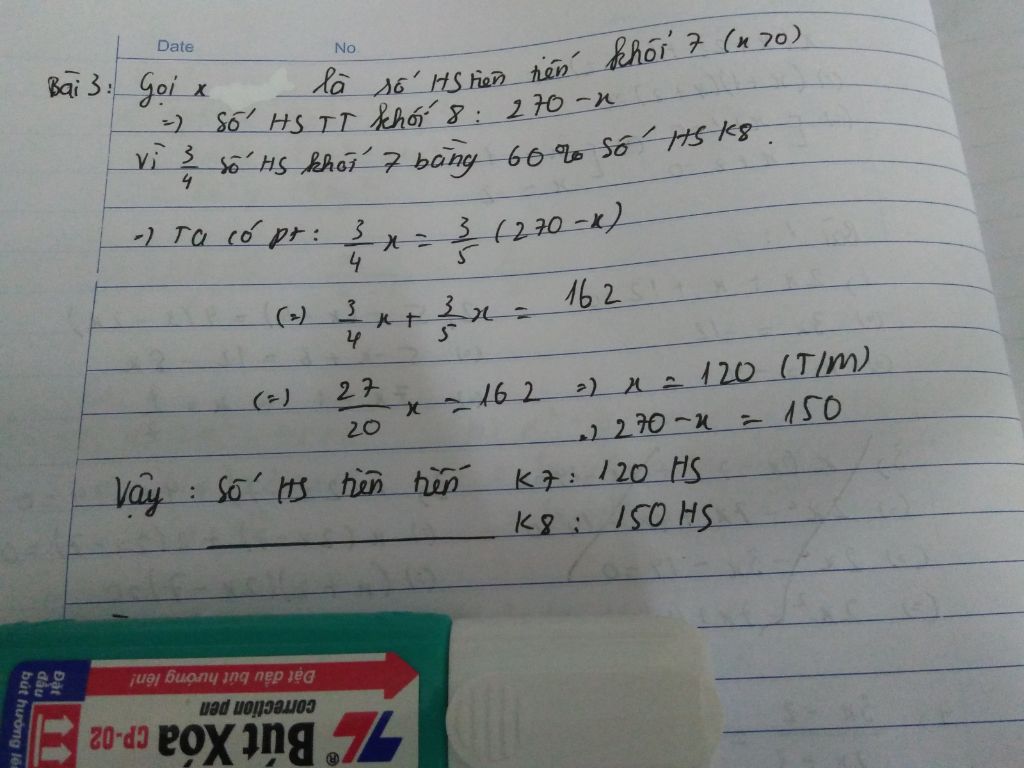 Date No
Bài 3: Gọi x là số HS tiên tiến khối 7 (x>0)
=) Số HS TT khối 8: 270-x
Vì 3/4 số HS khối 7 bằng 60% số HS K8.
=) Ta có pt: 3/4 x = 3/5 (270-x)
(=) 3/4 x + 3/5 x = 162
(=) 27/20 x = 162 =) x = 120 (T/M)
=) 270-x = 150
Vậy: Số HS tiên tiến K7: 120 HS
K8: 150 HS
Đặt đầu bút hướng lên!
Đặt đầu bút hướng lên
correction pen
TL ® Bút Xóa CP-02